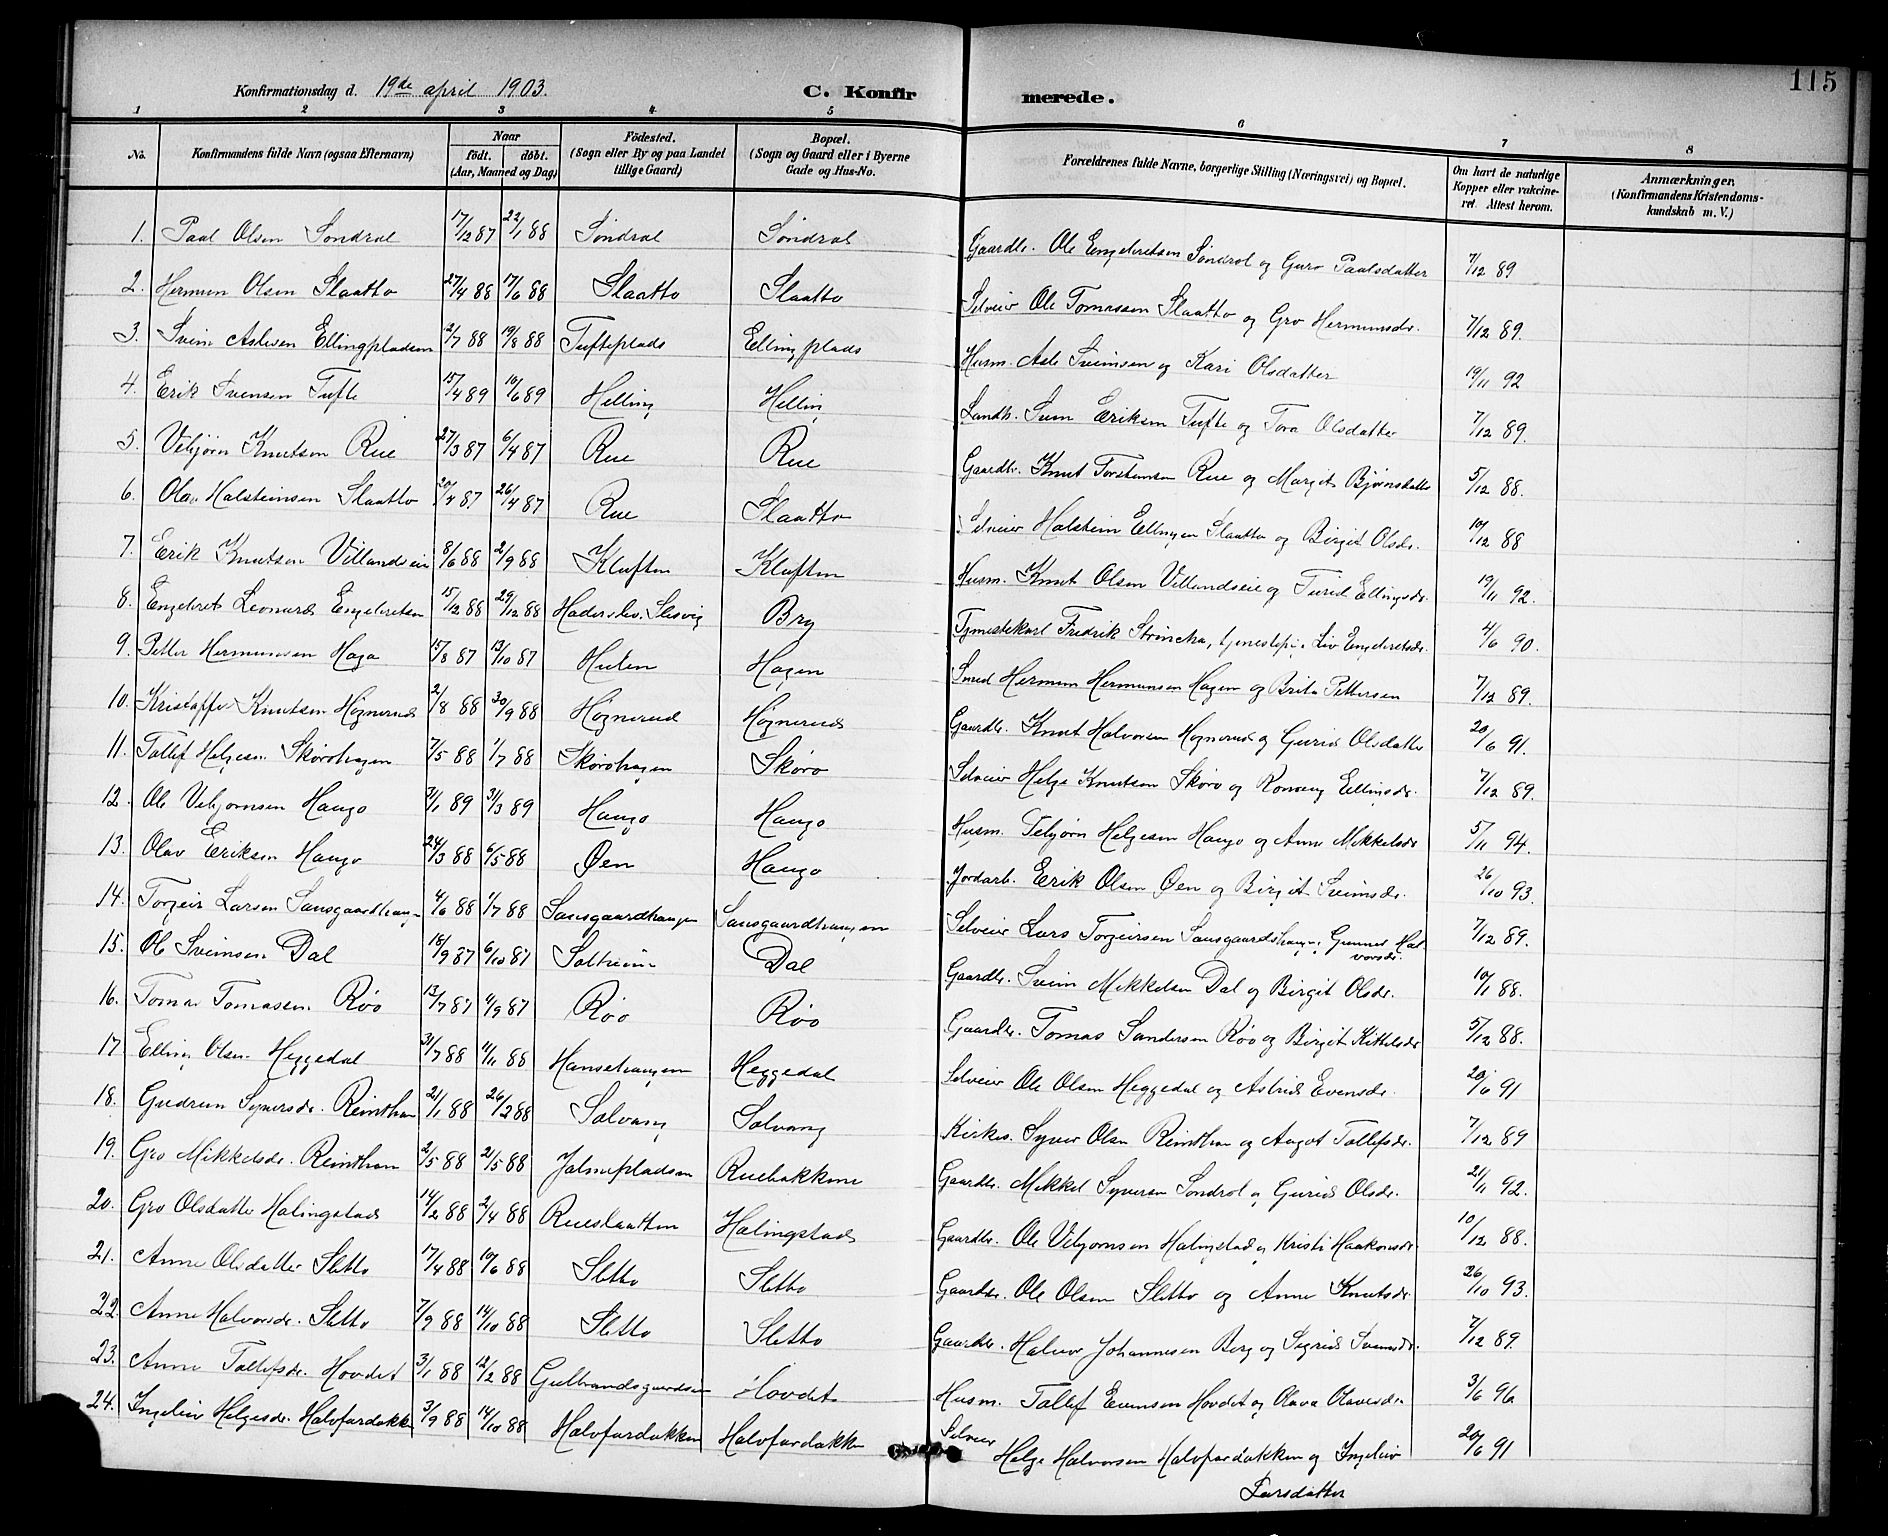 115
Konfirmationsdag d. 19de april 1903.
C. Konfirmerede.
1 2 3 4 5 6 7 8
No. Konfirmandens fulde Navn (ogsaa Efternavn) Naar født. døbt. (Aar, Maaned og Dag) Fødested. (Sogn eller By og paa Landet tillige Gaard) Bopæl. (Sogn og Gaard eller i Byerne Gade og Hus-No. Forældrenes fulde Navne, borgerlige Stilling (Næringsvei) og Bopæl. Om havt de naturlige Kopper eller vakcineret. Attest herom. Anmærkninger. (Konfirmandens Kristendomskundskab m. V.)
1. Paal Olsen Søndrol 17/12 87 22/1 88 Søndrol Søndrol Gaardbr. Ole Engebretsen Søndrol og Guro Paalsdatter 7/12 89
2. Hermun Olsen Slaatto 27/4 88 17/6 88 Slaatto Slaatto Selveier Ole Tomassen Slaatto og Gro Hermunsdr. 7/12 89.
3. Svein Aslesen Ellingpladsen 2/7 88 19/8 88 Tufteplads Ellingplads Husm. Asle Sveinsen og Kari Olsdatter 19/11 92
4. Erik Svensen Tufte 15/4 89 10/6 89 Helling Helling Landh. Svein Eriksen Tufte og Tora Olsdatter 7/12 89.
5. Vebjørn Knutsen Rue 27/3 87 6/4 87 Rue Rue Gaardbr. Knut Torstensen Rue og Margit Bjørnsdatter 5/12 88.
6. Olav Halsteinsen Slaatto 20/4 87 26/4 87 Rue Slaatto Selveier Halstein Ellingsen Slaatto og Birgit Olsdr. 10/12 88
7. Erik Knutsen Villandseie 8/6 88 2/9 88 Kluften Kluften Husm. Knut Olsen Villandseie og Turid Ellingsdr. 19/11 92.
8. Engebret Leonard Engebretsen 15/12 88 29/12 88 Haderslev. Slesvig Bry Tjenestekarl Fredrik Strincha, tjenestepige Liv Engebretsdr. 4/6 90.
9. Petter Hermunsen Haga 15/8 87 13/10 87 Hulen Hagen Smed Hermun Hermunsen Hagen og Brita Pettersen 7/12 89.
10. Kristoffer Knutsen Høgnerud 2/8 88 30/9 88 Høgnerud Høgnerud Gaardbr. Knut Halvorsen Høgnerud og Gurid Olsdatter 20/6 91.
11. Tollef Helgesen Skørohagen 7/5 88 1/7 88 Skørohagen Skøro Selveier Helge Knutsen Skøro og Rønnaug Ellingsdr. 7/12 89.
12. Ole Vebjørnsen Haugo 31/1 89 31/3 89 Haugo Haugo Husm. Vebjørn Helgesen Haugo og Anne Mikkelsdr 5/11 94.
13. Olav Eriksen Haugo 24/3 88 6/5 88 Øen Haugo Jordarb. Erik Olsen Øen og Birgit Sveinsdr. 26/10 93.
14. Torgeir Larsen Sansgaardhaug 4/6 88 1/7 88 Sansgaardhaugen Sansgaardhaugen Selveier Lars Torgeirsen Sansgaardshaug, Gunner Halvorsdr. 7/12 89.
15. Ole Sveinsen Dal 18/9 87 6/10 87 Soltreim Dal Gaardbr. Svein Mikkelsen Dal og Birgit Olsdr. 10/1 88.
16. Tomas Tomassen. Røo 13/7 87 4/9 87 Røo Røo Gaardbr. Tomas Sandersen Røo og Birgit Kittelsdr 5/12 88.
17 Elling Olsen Heggedal 31/7 88 11/11 88 Hansehaugen Heggedal Selveier Ole Olsen Heggedal og Astrid Evensdr. 20/6 91
18. Gudrun Syversdr. Reinthon 21/1 88 26/2 88 Solvang Solvang Kirkes. Syver Olsen Reinthon og Angot Tollefsdr. 7/12 89
19. Gro Mikkelsdr. Reinthon 2/5 88 21/5 88 Jalmepladsen Ruebakkene Gaardbr. Mikkel Syversen Søndrol og Gurid Olsdr. 21/11 92.
20. Gro Olsdatter Halingstad 14/2 88 2/4 88 Rueslaatten Halingstad Gaardbr. Ole Vebjørnsen Halingstad og Kristi Haakonsdr 10/12 88.
21. Anne Olsdatter Sletto 17/4 88 10/6 88 Sletto Sletto Gaardbr. Ole Olsen Sletto og Anne Knutsdr. 26/10 93.
22. Anne Halvorsdr. Sletto 7/9 88 14/10 88 Sletto Sletto Gaardbr. Halvor Johannesen Berg og Sigrid Svensdr. 7/12 89.
23. Anne Tollefsdr. Hovdet 3/1 88 12/2 88 Gulbrandsgaardseie Hovdet Husm. Tollef Evensen Hovdet og Olava Olavesdr 3/6 96
24. Ingeleiv Helgesdr. Halvfardokken 3/9 88 14/10 88 Halvfardokken Halvfardokken Selveier Helge Halvorsen Halvfardokken og Ingeleiv Larsdatter 20/6 91